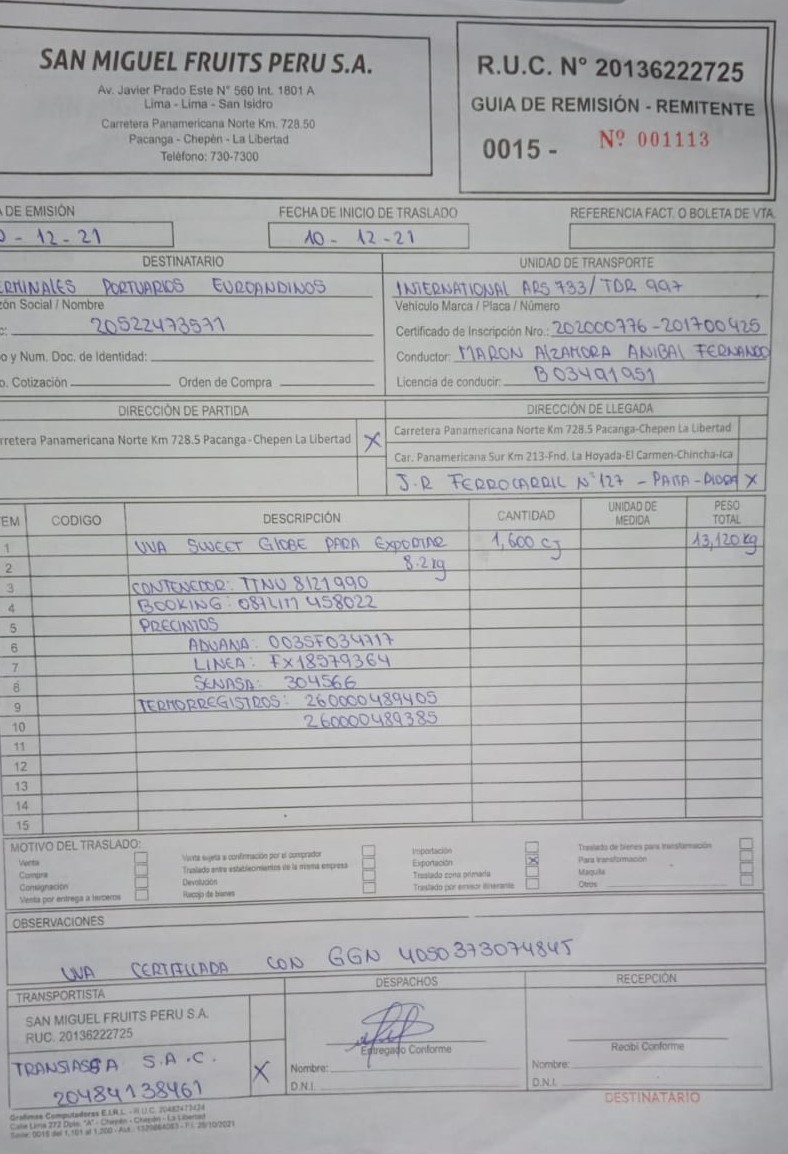 SAN MIGUEL FRUITS PERU S.A.
Av. Javier Prado Este N° 560 Int. 1801 A
Lima - Lima - San Isidro
Carretera Panamericana Norte Km. 728.50
Pacanga - Chepén - La Libertad
Teléfono: 730-7300
R.U.C. N° 20136222725
GUIA DE REMISIÓN - REMITENTE
0015 - Nº 001113
DE EMISIÓN
- 12 - 21
FECHA DE INICIO DE TRASLADO
10 - 12 - 21
REFERENCIA FACT. O BOLETA DE VTA.
DESTINATARIO
ERMINALES PORTUARIOS EUROANDINOS
zón Social / Nombre
20522473571
o y Num. Doc. de Identidad:
o. Cotización Orden de Compra
UNIDAD DE TRANSPORTE
INTERNATIONAL ARS 733/TDR 997
Vehículo Marca / Placa / Número
Certificado de Inscripción Nro.: 202000776-201700425
Conductor: MARON ALZAMORA ANIBAL FERNANDO
Licencia de conducir: B03491951
DIRECCIÓN DE PARTIDA
rretera Panamericana Norte Km 728.5 Pacanga-Chepen La Libertad X
DIRECCIÓN DE LLEGADA
Carretera Panamericana Norte Km 728.5 Pacanga-Chepen La Libertad
Car. Panamericana Sur Km 213-Fnd. La Hoyada-El Carmen-Chincha-Ica
J.R FERROCARRIL N°127 - PAITA-PIURA X
EM CODIGO DESCRIPCIÓN CANTIDAD UNIDAD DE MEDIDA PESO TOTAL
1 UVA SWEET GLOBE PARA EXPORTAR 1,600 CJ 13,120 kg
2 8.2 kg
3 CONTENEDOR: TTNU 8121990
4 BOOKING: 087LIM 458022
5 PRECINTOS
6 ADUANA: 0035F034717
7 LINEA: FX18579364
8 SENASA: 304566
9 TERMORREGISTROS: 260000489405
10 260000489385
11
12
13
14
15
MOTIVO DEL TRASLADO:
Venta
Compra
Consignación
Venta por entrega a terceros
Venta sujeta a confirmación por el comprador
Traslado entre establecimientos de la misma empresa
Devolución
Recojo de bienes
Importación
Exportación X
Traslado zona primaria
Traslado por emisor itinerante
Traslado de bienes para transformación
Para transformación
Maquila
Otros
OBSERVACIONES
UVA CERTIFICADA CON GGN 4050373074845
TRANSPORTISTA
SAN MIGUEL FRUITS PERU S.A.
RUC. 20136222725
TRANSIASBA S.A.C. X
20484138461
DESPACHOS
Entregado Conforme
Nombre:
D.N.I.
RECEPCIÓN
Recibí Conforme
Nombre:
D.N.I.
DESTINATARIO
Grafimas Computadoras E.I.R.L. - R.U.C. 20482473424
Calle Lima 272 Dpto. "A" - Chepén - Chepén - La Libertad